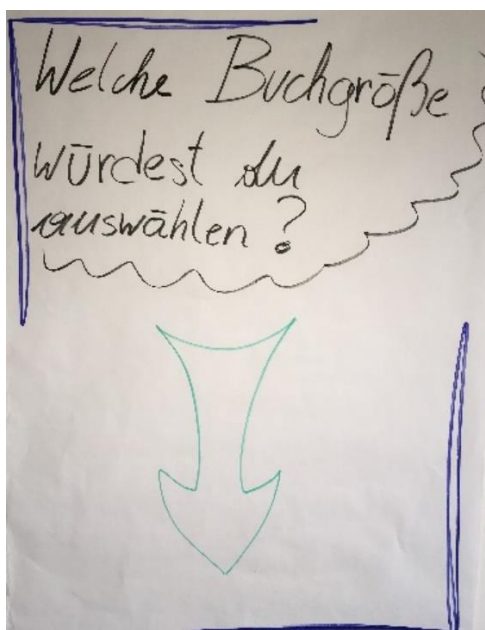 Welche Buchgröße
würdest du
auswählen?